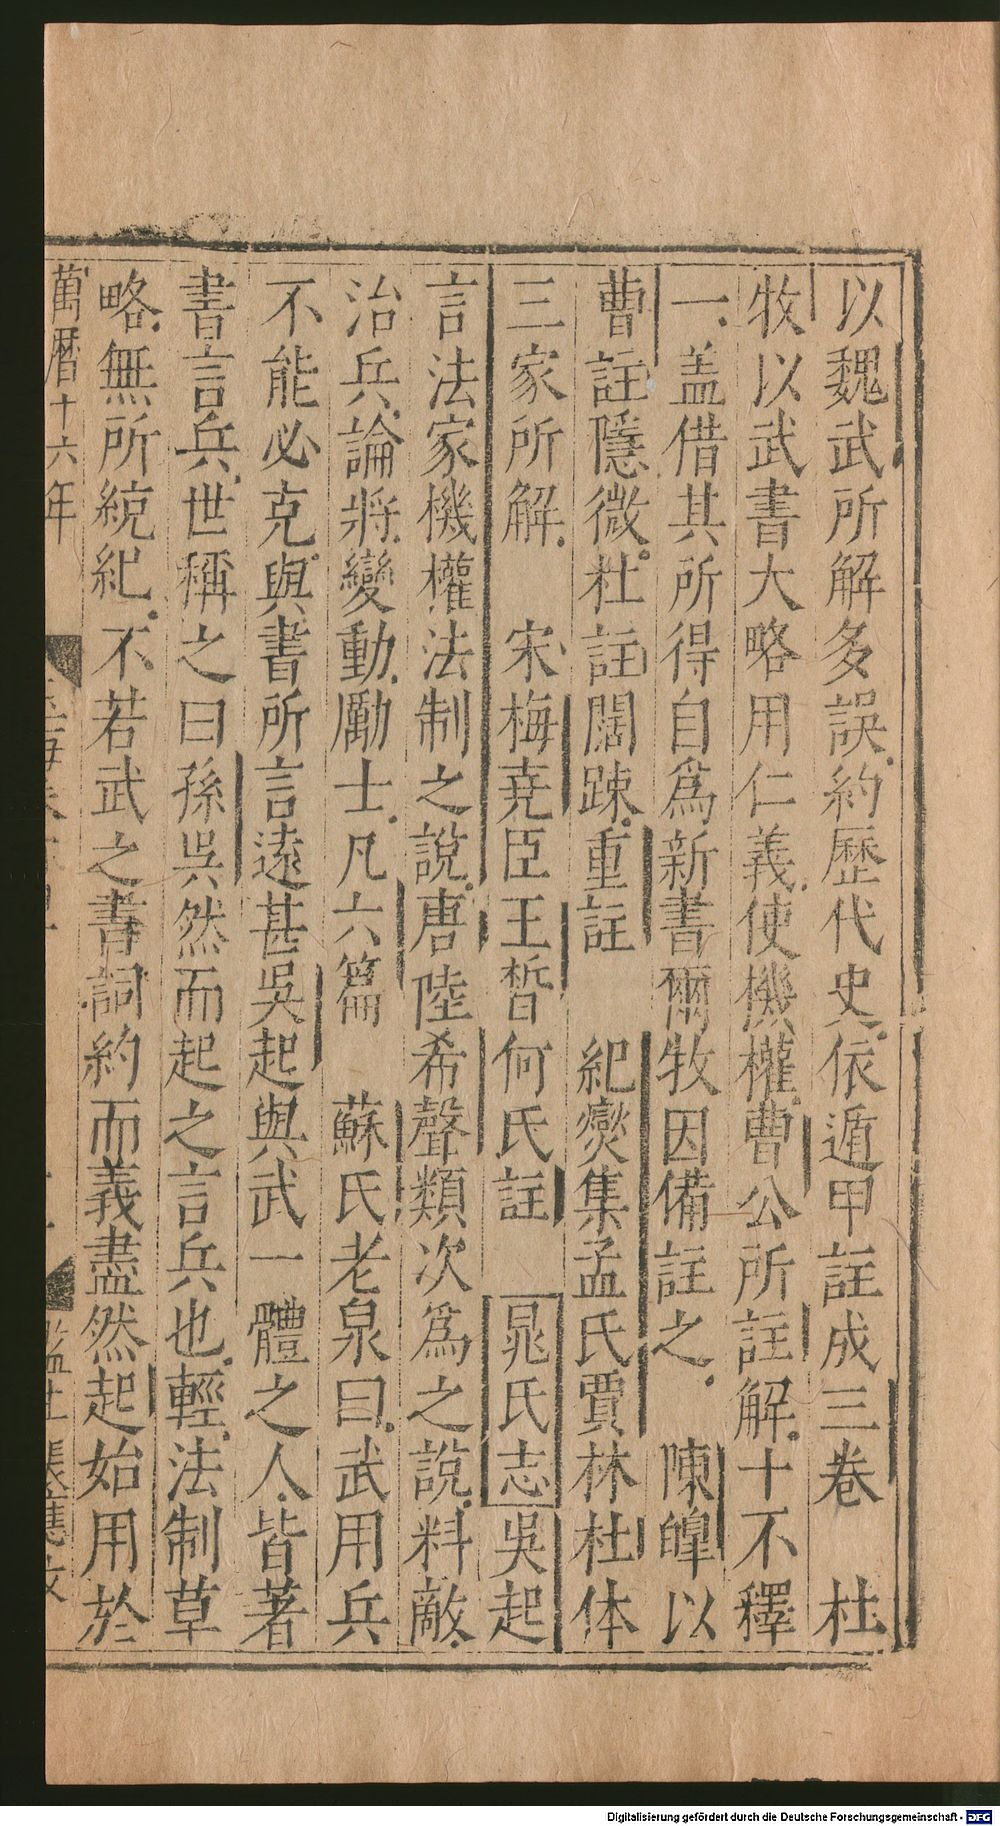 以魏武所解多誤約歷代史依遁甲註成三卷　杜
牧以武書大略用仁義使機權曹公所註解十不釋
一蓋借其所得自爲新書爾牧因備註之　陳皥以
曹註隱微杜註闊踈重註　紀燮集孟氏賈林杜佑
三家所解　宋梅堯臣王晳何氏註　晁氏志吳起
言法家機權法制之說唐陸希聲類次爲之說料敵
治兵論將變動勵士凡六篇　蘇氏老泉曰武用兵
不能必克與書所言遠甚吳起與武一體之人皆著
書言兵世稱之曰孫吳然而起之言兵也輕法制草
略無所統紀不若武之書詞約而義盡然起始用於
萬曆十六年
Digitalisierung gefördert durch die Deutsche Forschungsgemeinschaft - DFG